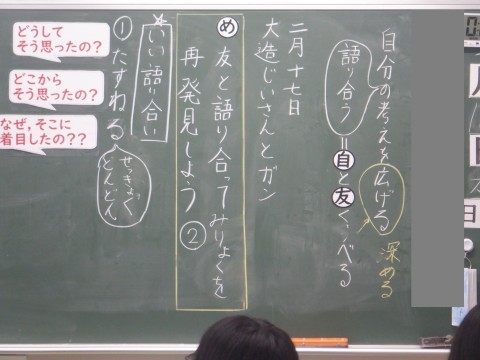 自分の考えを広げる 深める
語り合う=自と友くらべる
二月十七日
大造じいさんとガン
め 友と語り合ってみりょくを
再発見しよう②
いい語り合い
①たずねる
せっきょく
どんどん
どうして
そう思ったの?
どこから
そう思ったの?
なぜ,そこに
着目したの??
日